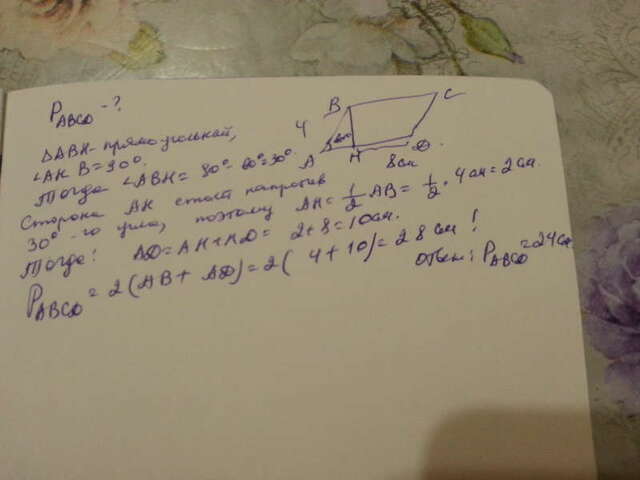 P ABCD - ?
B
C
4
60°
A
H
8см
D
△ABH - прямоугольный,
∠AHB=90°.
Тогда ∠ABH= 90°-60°=30°.
Сторона AH стоит напротив
30°-го угла, поэтому AH=1/2 AB= 1/2 · 4см=2см.
Тогда: AD=AH+HD= 2+8=10см.
P ABCD = 2(AB+ AD)=2( 4+10)=28см!
Ответ: P ABCD =24см